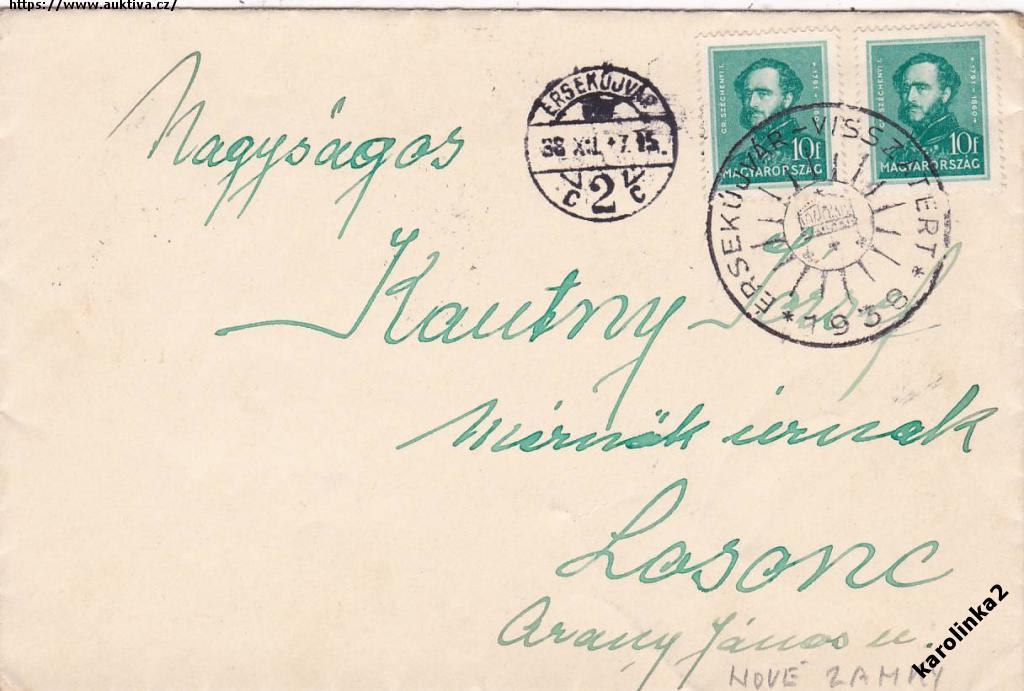 https://www.auktiva.cz/
GR. SZÉCHENYI I. * 1791-
10f
MAGYARORSZÁG
GR. SZÉCHENYI I. * 1791-1860 +
10f
MAGYARORSZÁG
ÉRSEKÚJVÁR
38 XII. 7. 15
C 2 C
ÉRSEKÚJVÁR-VISSZATÉRT
* 1938 *
Nagyságos
Kautny
Mérnök úrnak
Losonc
Arany János u.
NOVÉ ZAMKY
karolinka2